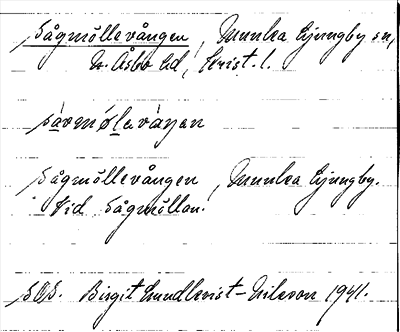 Sågmöllevången, Munka Ljungby sn,
N. Åsbo hd, Krist. l.
såvmøləváŋən
Sågmöllevången, Munka Ljungby.
Vid Sågmöllan.
SOS. Birgit Lundkvist-Nilsson 1941.